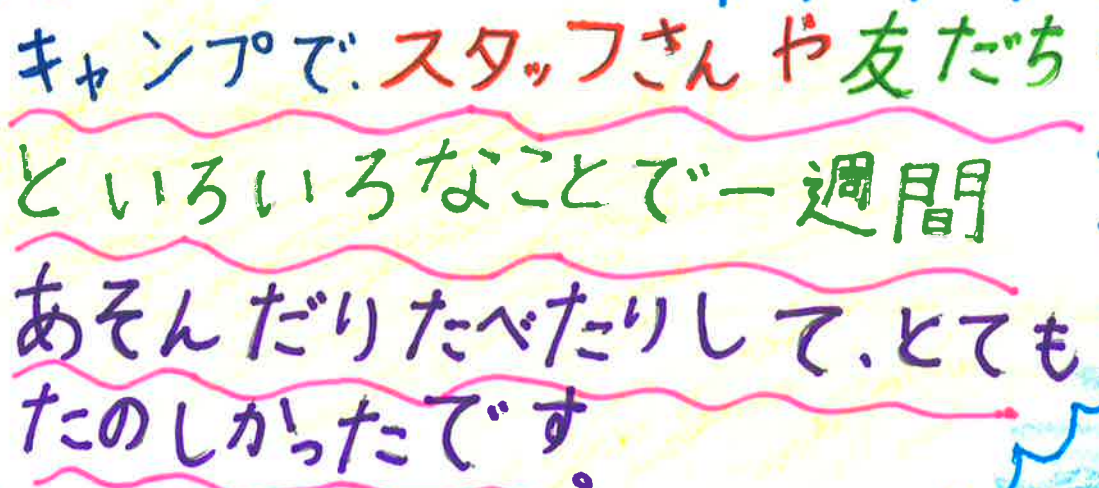 キャンプで、スタッフさんや友だち
といろいろなことで一週間
あそんだりたべたりして、とても
たのしかったです。